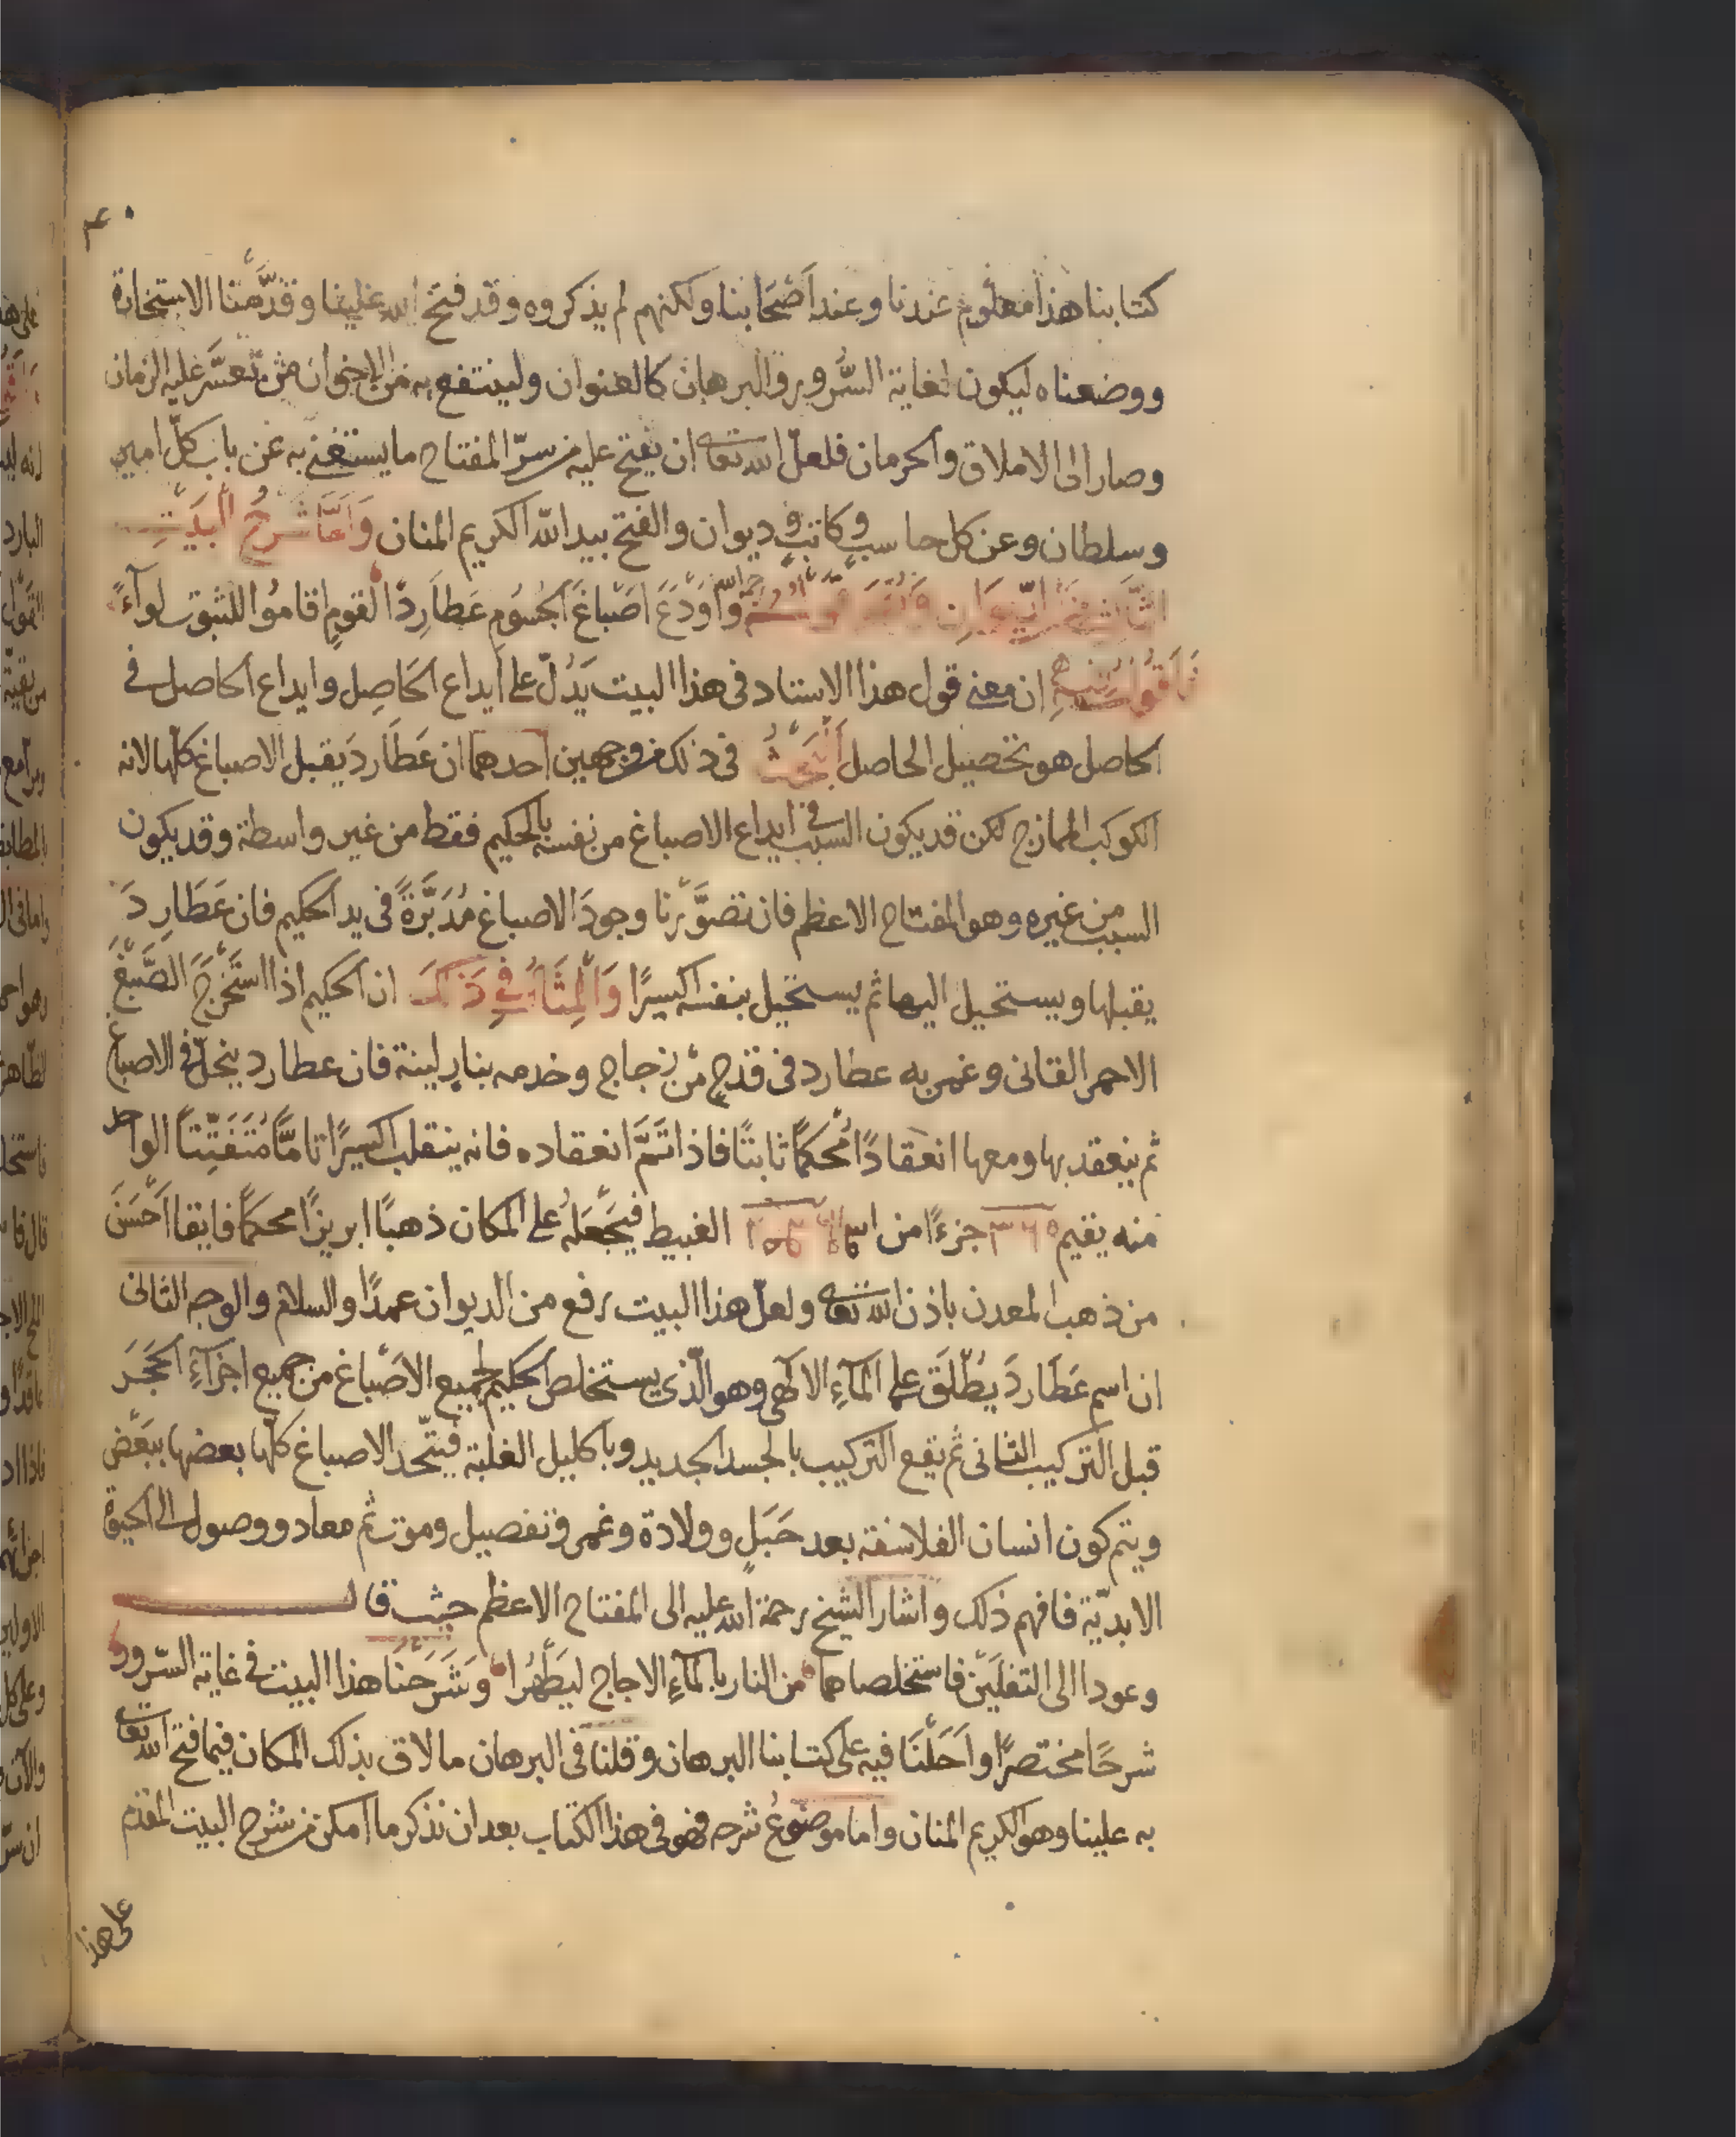 كتابنا هذا معلوم عندنا وعند اصحابنا ولكنهم لم يذكروه وقد فتح الله علينا وقدمنا الاستخارة
ووضعناه ليكون لغاية السرور والبرهان كالعنوان ولينتفع به من الاخوان من تعسر عليه الزمان
وصار الى الاملاق والحرمان فلعل الله تعالى ان يفتح عليه من سر المفتاح ما يستغنى به عن باب كل امير
وسلطان وعن كل حاسب وكاتب وديوان والفتح بيد الله الكريم المنان وَاَمَّا شَرحُ البَيتِ
واَودَعَ اَصْبَاغَ الجُسُوم عَطارِدًا لقومٍ اقامُوا للثبوت لِوآءً
فاقول ان معنى قول هذا الاستاد فى هذا البيت يَدُلّ على ايداع الحَاصِل وايداع الحاصل فى
الحاصل هو تحصيل الحاصل فى ذلك من وجهين احدهما ان عَطارِدَ يقبل الاصباغ كلها لانه
الكوكب الممازج لكن قد يكون السبب فى ايداع الاصباغ من نفسه بالحكيم فقط من غير واسطة وقد يكون
السبب من غيره وهو المفتاح الاعظم فان تصوَّرنا وجودَ الاصباغ مُدَبَّرَةً فى يد الحكيم فان عَطَارِدَ
يقبلها ويستحيل اليها ثم يستحيل بنفسه اكسيرًا وَالْمِثَالُ فِي ذَلِكَ ان الحكيم اذا استَخْرَجَ الصَّبْغَ
الاحمر القانى وغمر به عطارد فى قدحٍ من زجاج وخدمه بنارٍ لينة فان عطارد ينحلّ فى الاصباغ
ثم ينعقد بها ومعها انعقادًا مُحكمًا ثابتًا فاذا تَمَّ انعقاده فانه ينقلب اكسيرًا تامًّا مُتَفَتِّتًا الواحد
منه يقيم ٣٦٥ جزءًا من الغبيط فيَجْعَلهُ على المكان ذهبًا ابريزًا محكمًا فايقا اَحْسَنَ
من ذهب المعدن باذن الله تعالى ولعلّ هذا البيت رفع من الديوان عمدًا والسلام والوجه الثانى
ان اسم عَطَارِدَ يُطْلَقَ على المآءِ الالٓهى وهو الّذى يستخلص الحكيم لجميع الاَصْباغ من جميع اجزآءِ الحَجَرَ
قبل التركيب الثانى ثم يقع التركيب بالجسد الجديد وباكليل الغلبة فيتّحد الاصباغ كلّها بعضها ببَعْض
ويتم كون انسان الفلاسفة بعد حَبَلٍ وولادة وغمر وتفصيل وموت ثم معاد ووصول الى الحيوة
الابديّة فافهم ذلك واشار الشيخ رحمة الله عليه الى المفتاح الاعظم حيث قال
وعودا الى الثفلَيْن فاستخلصاهما من النار بالمآءِ الاجاج ليَطْهُرا وَشَرَحْنَا هذا البيت فى غاية السرور
شرحًا مختصرًا واَحَلْنَا فيه على كتابنا البرهان وقلنا فى البرهان ما لاق بذلك المكان فيما فتح الله تعالى
به علينا وهو الكريم المنان واما موضوعُ شرحه فهو فى هذا الكتاب بعد ان نذكر ما امكن من شرح البيت المقدم
على هذا